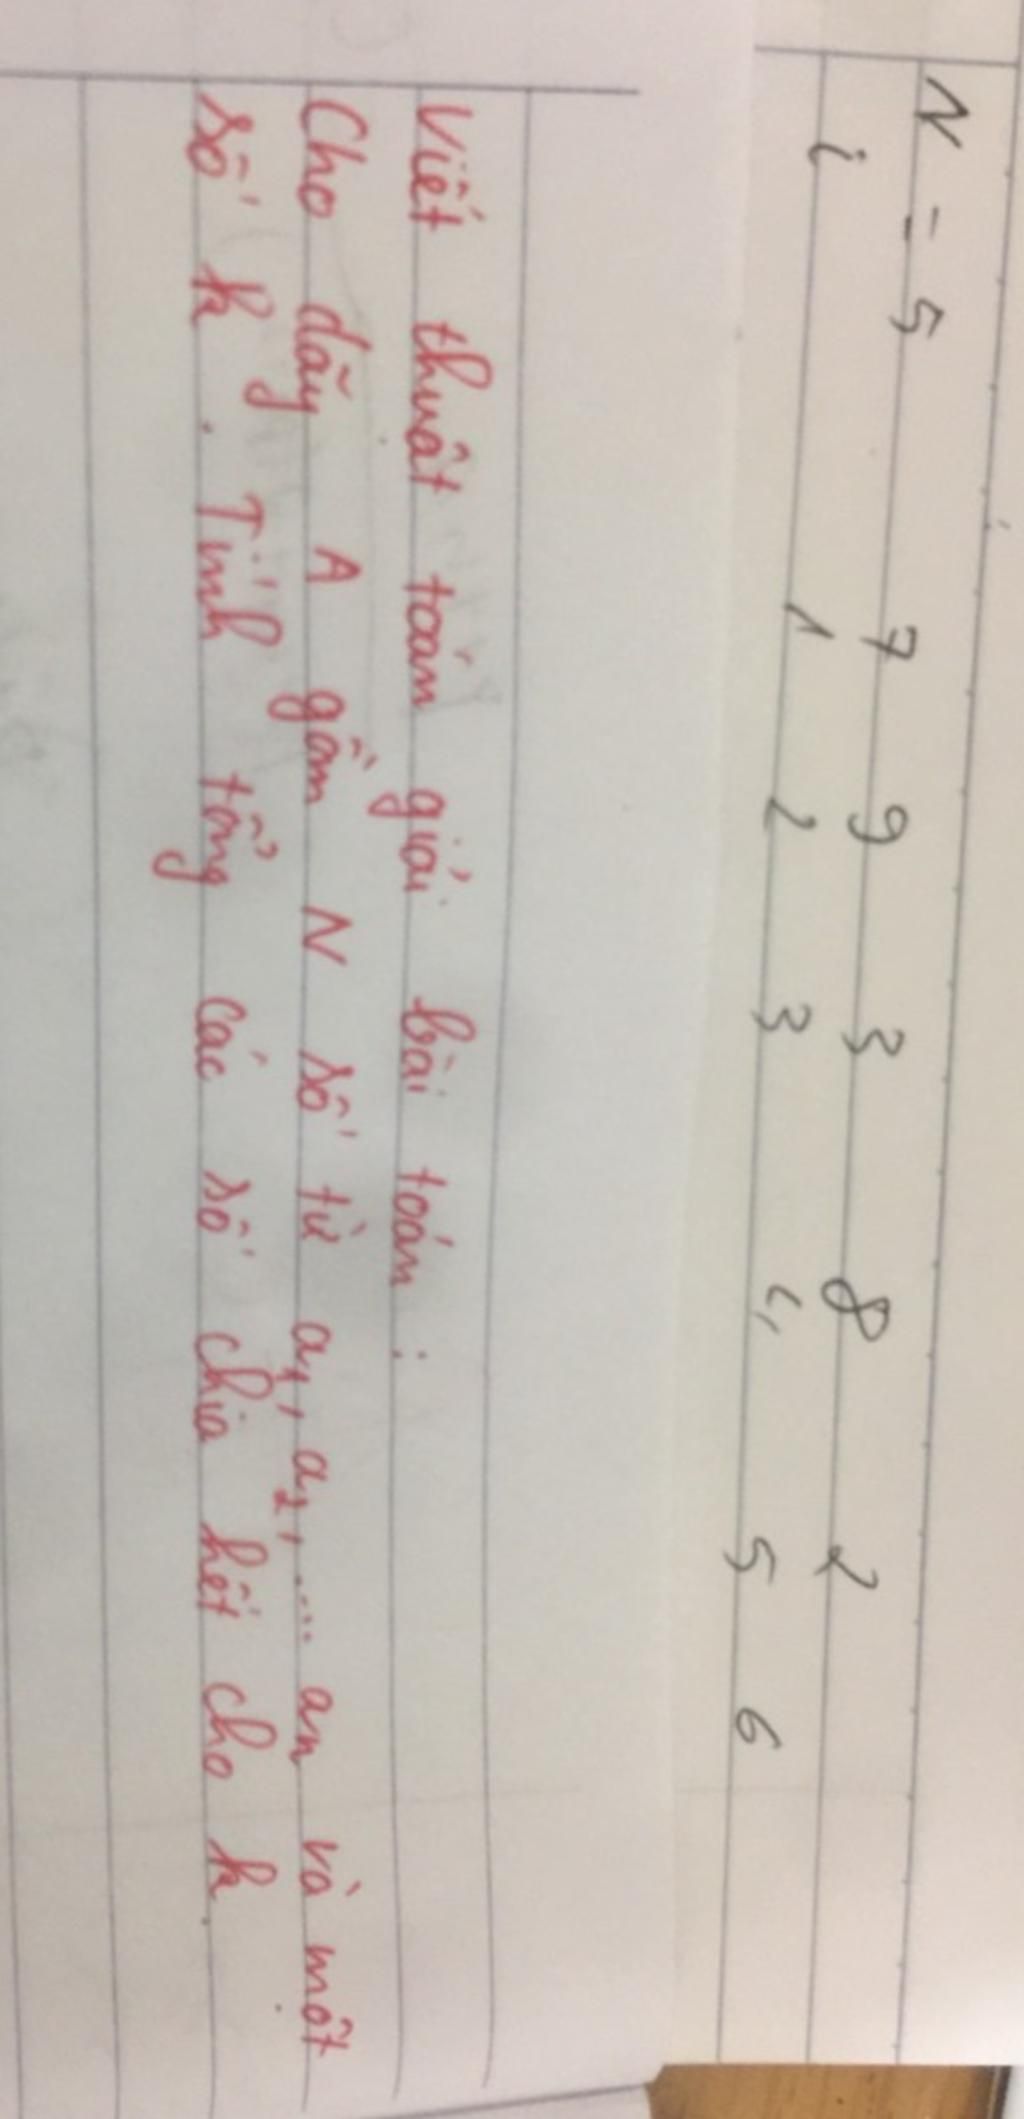 N = 5 7 9 3 8 2
i 1 2 3 4 5 6
Viết thuật toán giải bài toán :
Cho dãy A gồm N số từ a1, a2, .... an và một
số k. Tính tổng các số chia hết cho k.